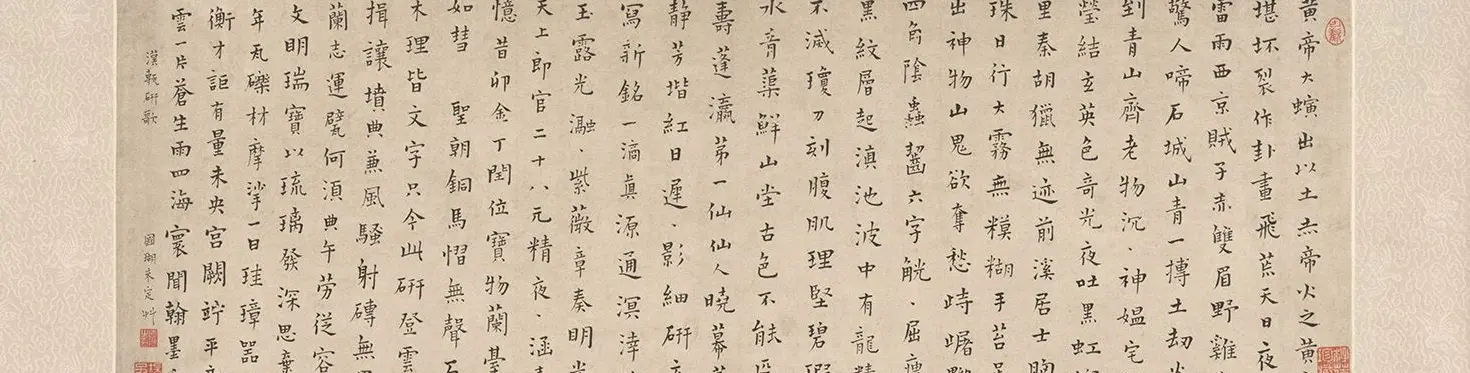 黄帝大螾出以土赤帝火之黄
堪坏裂作卦畫飛荒天日夜
雷雨西京賊子赤雙眉野雞
驚人啼石城山青一摶土劫
到青山齊老物沉、神媪宅
瑩結玄英色奇光夜吐黑虹
里秦胡獵無迹前溪居士
珠日行大霧無糢糊手苔
出神物山鬼欲奪愁跱䠧
四角陰蟲齧六字觥、屈
黑紋層起滇池波中有龍精
不滅瓊刀刻腹肌理堅碧
水音蕖鮮山堂古色不
壽蓬瀛苐一仙仙人曉幕
静芳堦紅日遲、影細研
寫新銘一滴真源通溟涬
玉露光瀜、紫薇章奏明光
天上郎官二十八元精夜、涵
憶昔卯金丁閏位寶物蘭臺
如彗 聖朝銅馬慴無聲
木理皆文字只今此研登雲
揖讓墳典兼風騷射磚無
蘭志運甓何湏典午勞從容
文明瑞寶以琉璃發深思棄
年瓦礫材摩挲一日珪璋器
衡才詎有量未央宮闕踄平
雲一片蒼生雨四海寰聞翰墨
漢甎研歌
國瑚未定艸